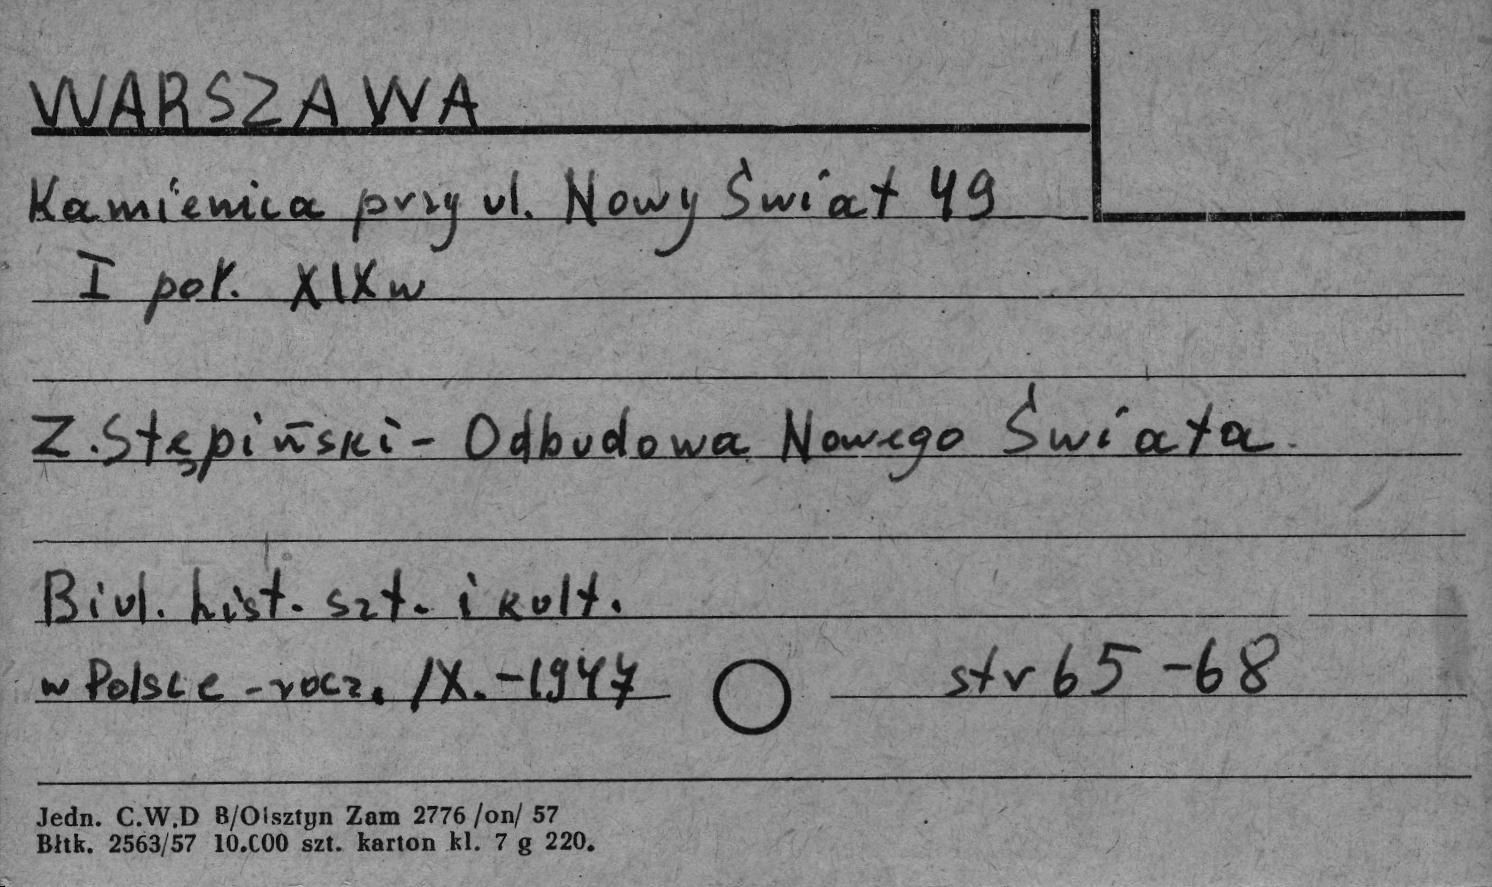 WARSZAWA
Kamienica przy ul. Nowy Świat 49
I poł. XIX w
Z. Stępiński - Odbudowa Nowego Świata.
Biul. hist. szt. i kult.
w Polsce - rocz. IX. - 1947 str 65 - 68
Jedn. C.W.D B/Olsztyn Zam 2776 /on/ 57
Błtk. 2563/57 10.000 szt. karton kl. 7 g 220.